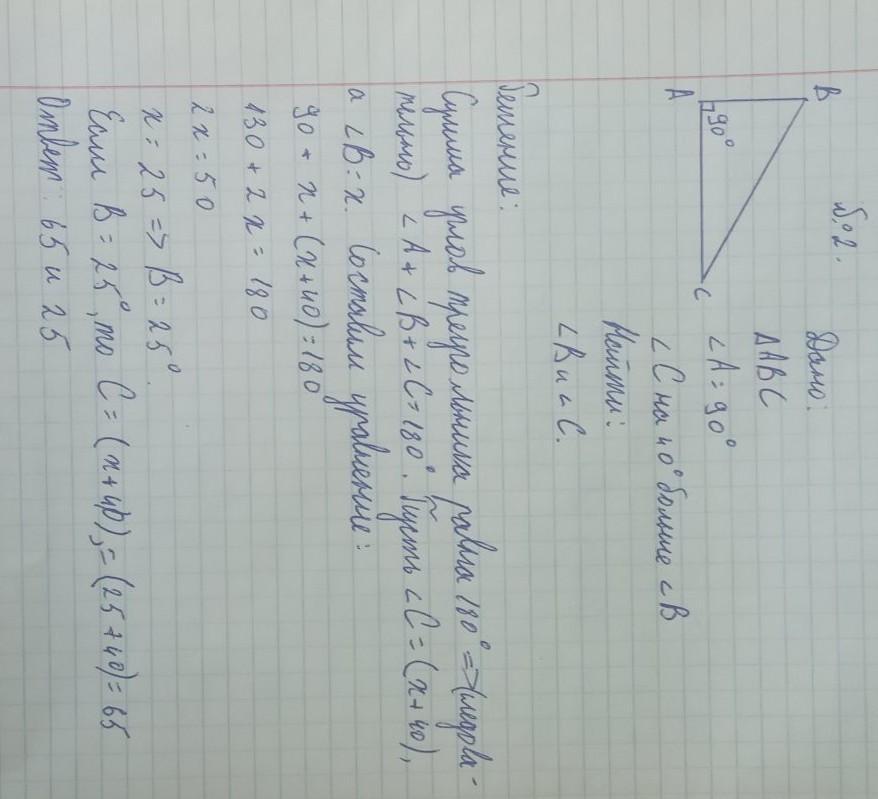 №2.
B
A
90°
C
Дано:
ΔABC
∠A = 90°
∠C на 40° больше ∠B
Найти:
∠B и ∠C.
Решение:
Сумма углов треугольника равна 180° => (следова-
тельно) ∠A + ∠B + ∠C = 180°. Пусть ∠C = (x+40),
а ∠B = x. Составим уравнение:
90 + x + (x+40) = 180
130 + 2x = 180
2x = 50
x = 25 => B = 25°.
Если B = 25°, то C = (x+40), = (25+40) = 65
Ответ: 65 и 25